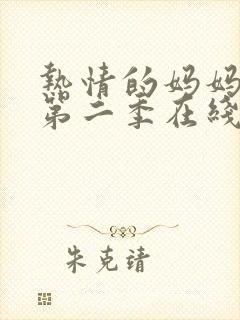 热情的妈妈
第二季在綫
朱克靖